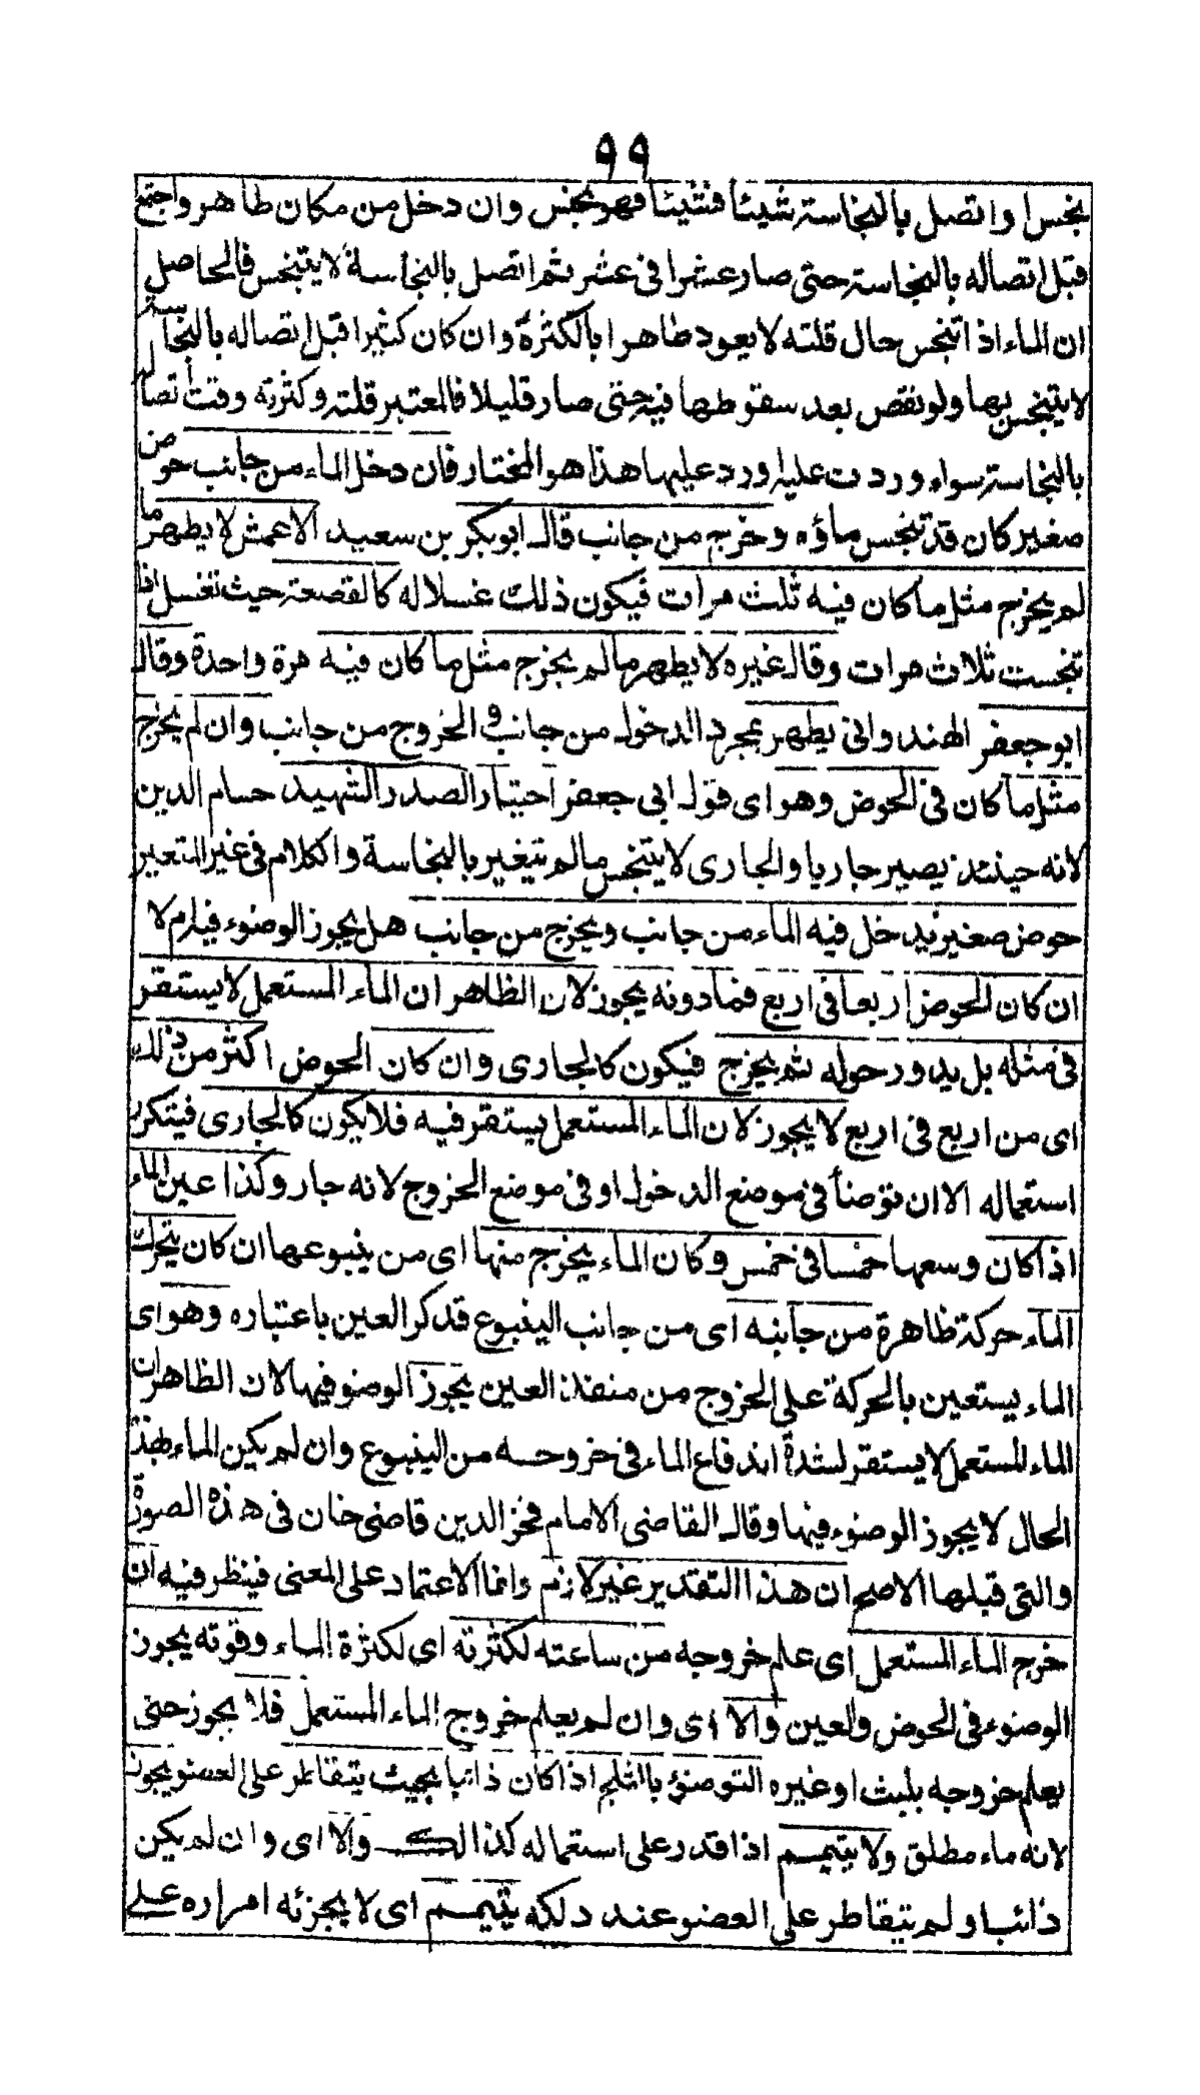 ٩٩
نجسا واتصل بالنجاسة شيئا فشيئا فهو نجس وان دخل من مكان طاهر واجتمع
قبل اتصاله بالنجاسة حتى صار عشرا فى عشر ثم اتصل بالنجاسة لا يتنجس فالحاصل
ان الماء اذا تنجس حال قلته لا يعود طاهرا بالكثرة وان كان كثيرا قبل اتصاله بالنجاسة
لا يتنجس بها ولو نقص بعد سقوطها فيه حتى صار قليلا فالمعتبر قلته وكثرته وقت اتصاله
بالنجاسة سواء وردت عليه او ورد عليها هذا هو المختار فان دخل الماء من جانب حوض
صغير كان قد تنجس ماؤه وخرج من جانب قال ابو بكر بن سعيد الاعمش لا يطهر ما
لم يخرج مثل ما كان فيه ثلث مرات فيكون ذلك غسلا له كالقصعة حيث تغسل اذا
تنجست ثلاث مرات وقال غيره لا يطهر ما لم يخرج مثل ما كان فيه مرة واحدة وقال
ابو جعفر الهندوانى يطهر بمجرد الدخول من جانب والخروج من جانب وان لم يخرج
مثل ما كان فى الحوض وهو اى قول ابى جعفر اختيار الصدر الشهيد حسام الدين
لانه حينئذ يصير جاريا والجارى لا يتنجس ما لم يتغير بالنجاسة والكلام فى غير المتغير
حوض صغير يدخل فيه الماء من جانب ويخرج من جانب هل يجوز الوضوء فيه ام لا
ان كان الحوض اربعا فى اربع فما دونه يجوز لان الظاهر ان الماء المستعمل لا يستقر
فى مثله بل يدور حوله ثم يخرج فيكون كالجارى وان كان الحوض اكثر من ذلك
اى من اربع فى اربع لا يجوز لان الماء المستعمل يستقر فيه فلا يكون كالجارى فيتكرر
استعماله الا ان توضأ فى موضع الدخول او فى موضع الخروج لانه جار وكذا عين الماء
اذا كان وسعها خمسا فى خمس وكان الماء يخرج منها اى من ينبوعها ان كان يتحرك
الماء حركة ظاهرة من جانبه اى من جانب الينبوع قد كر العين باعتباره وهو اى
الماء يستعين بالحركة على الخروج من منفذ العين يجوز الوضو فيها لان الظاهر ان
الماء المستعمل لا يستقر لشدة اندفاع الماء فى خروجه من الينبوع وان لم يكن الماء بهذا
الحال لا يجوز الوضوء فيها وقال القاضى الامام فخر الدين قاضى خان فى هذه الصورة
والتى قبلها الاصح ان هذا التقدير غير لازم وانما الاعتماد على المعنى فينظر فيه ان
خرج الماء المستعمل اى علم خروجه من ساعته لكثرته اى لكثرة الماء وقوته يجوز
الوضوء فى الحوض والعين والا اى وان لم يعلم خروج الماء المستعمل فلا يجوز حتى
يعلم خروجه بلبث او غيره التوضؤ بالثلج اذا كان ذائبا بحيث يتقاطر على العضو يجوز
لانه ماء مطلق ولا يتيمم اذا قدر على استعماله كذالك والا اى وان لم يكن
ذائبا ولم يتقاطر على العضو عند دلكه يتيمم اى لا يجزئه امراره على